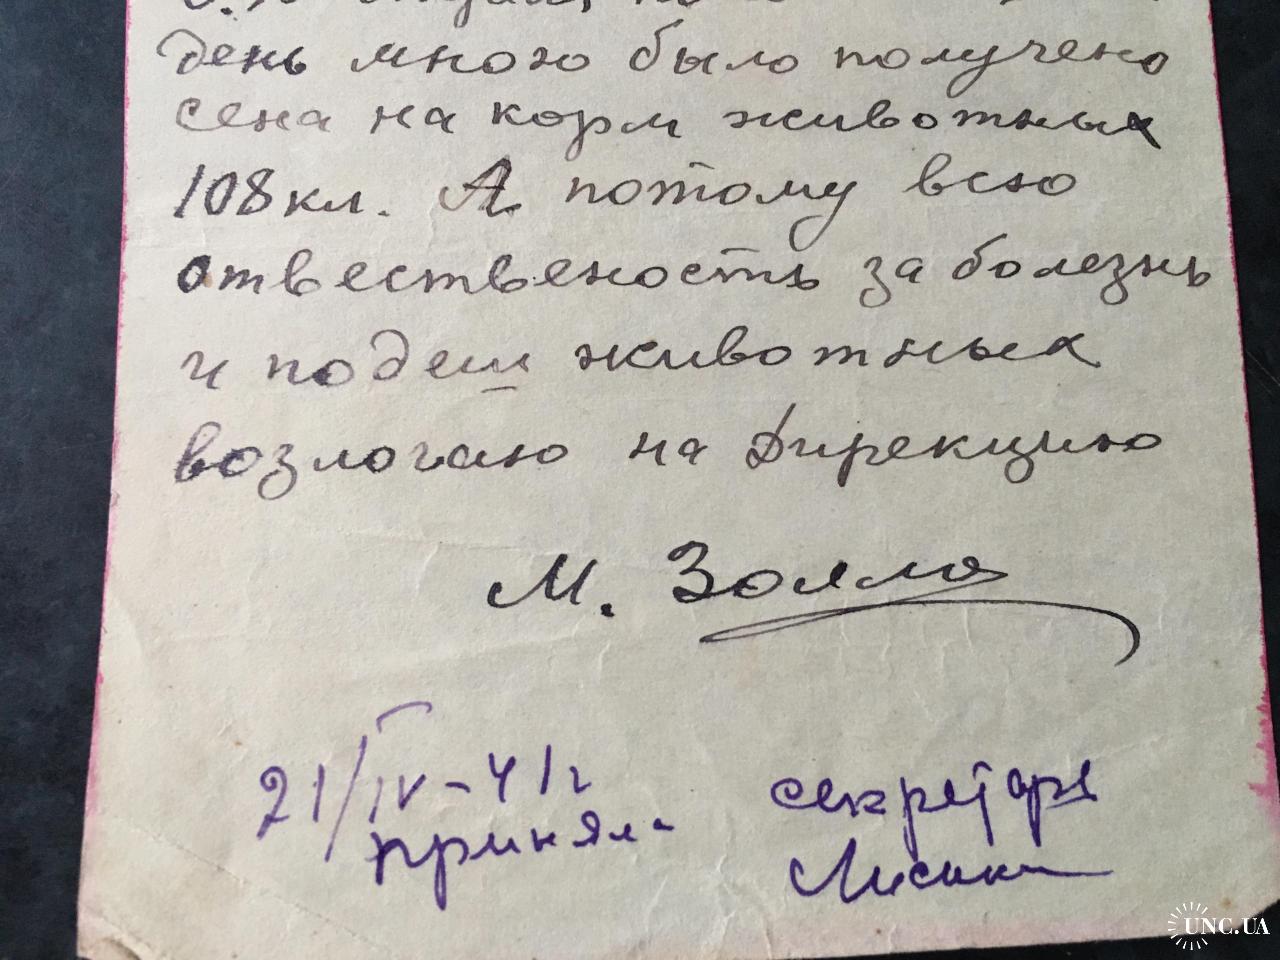 день много было получено
сена на корм животных
108 кл. А потому всю
отвествено­сть за болезнь
и подеш животных
возлогаю на Дирекцию
М. Золло
21/IV-41г секретарь
приняла Лисик
UNC.UA